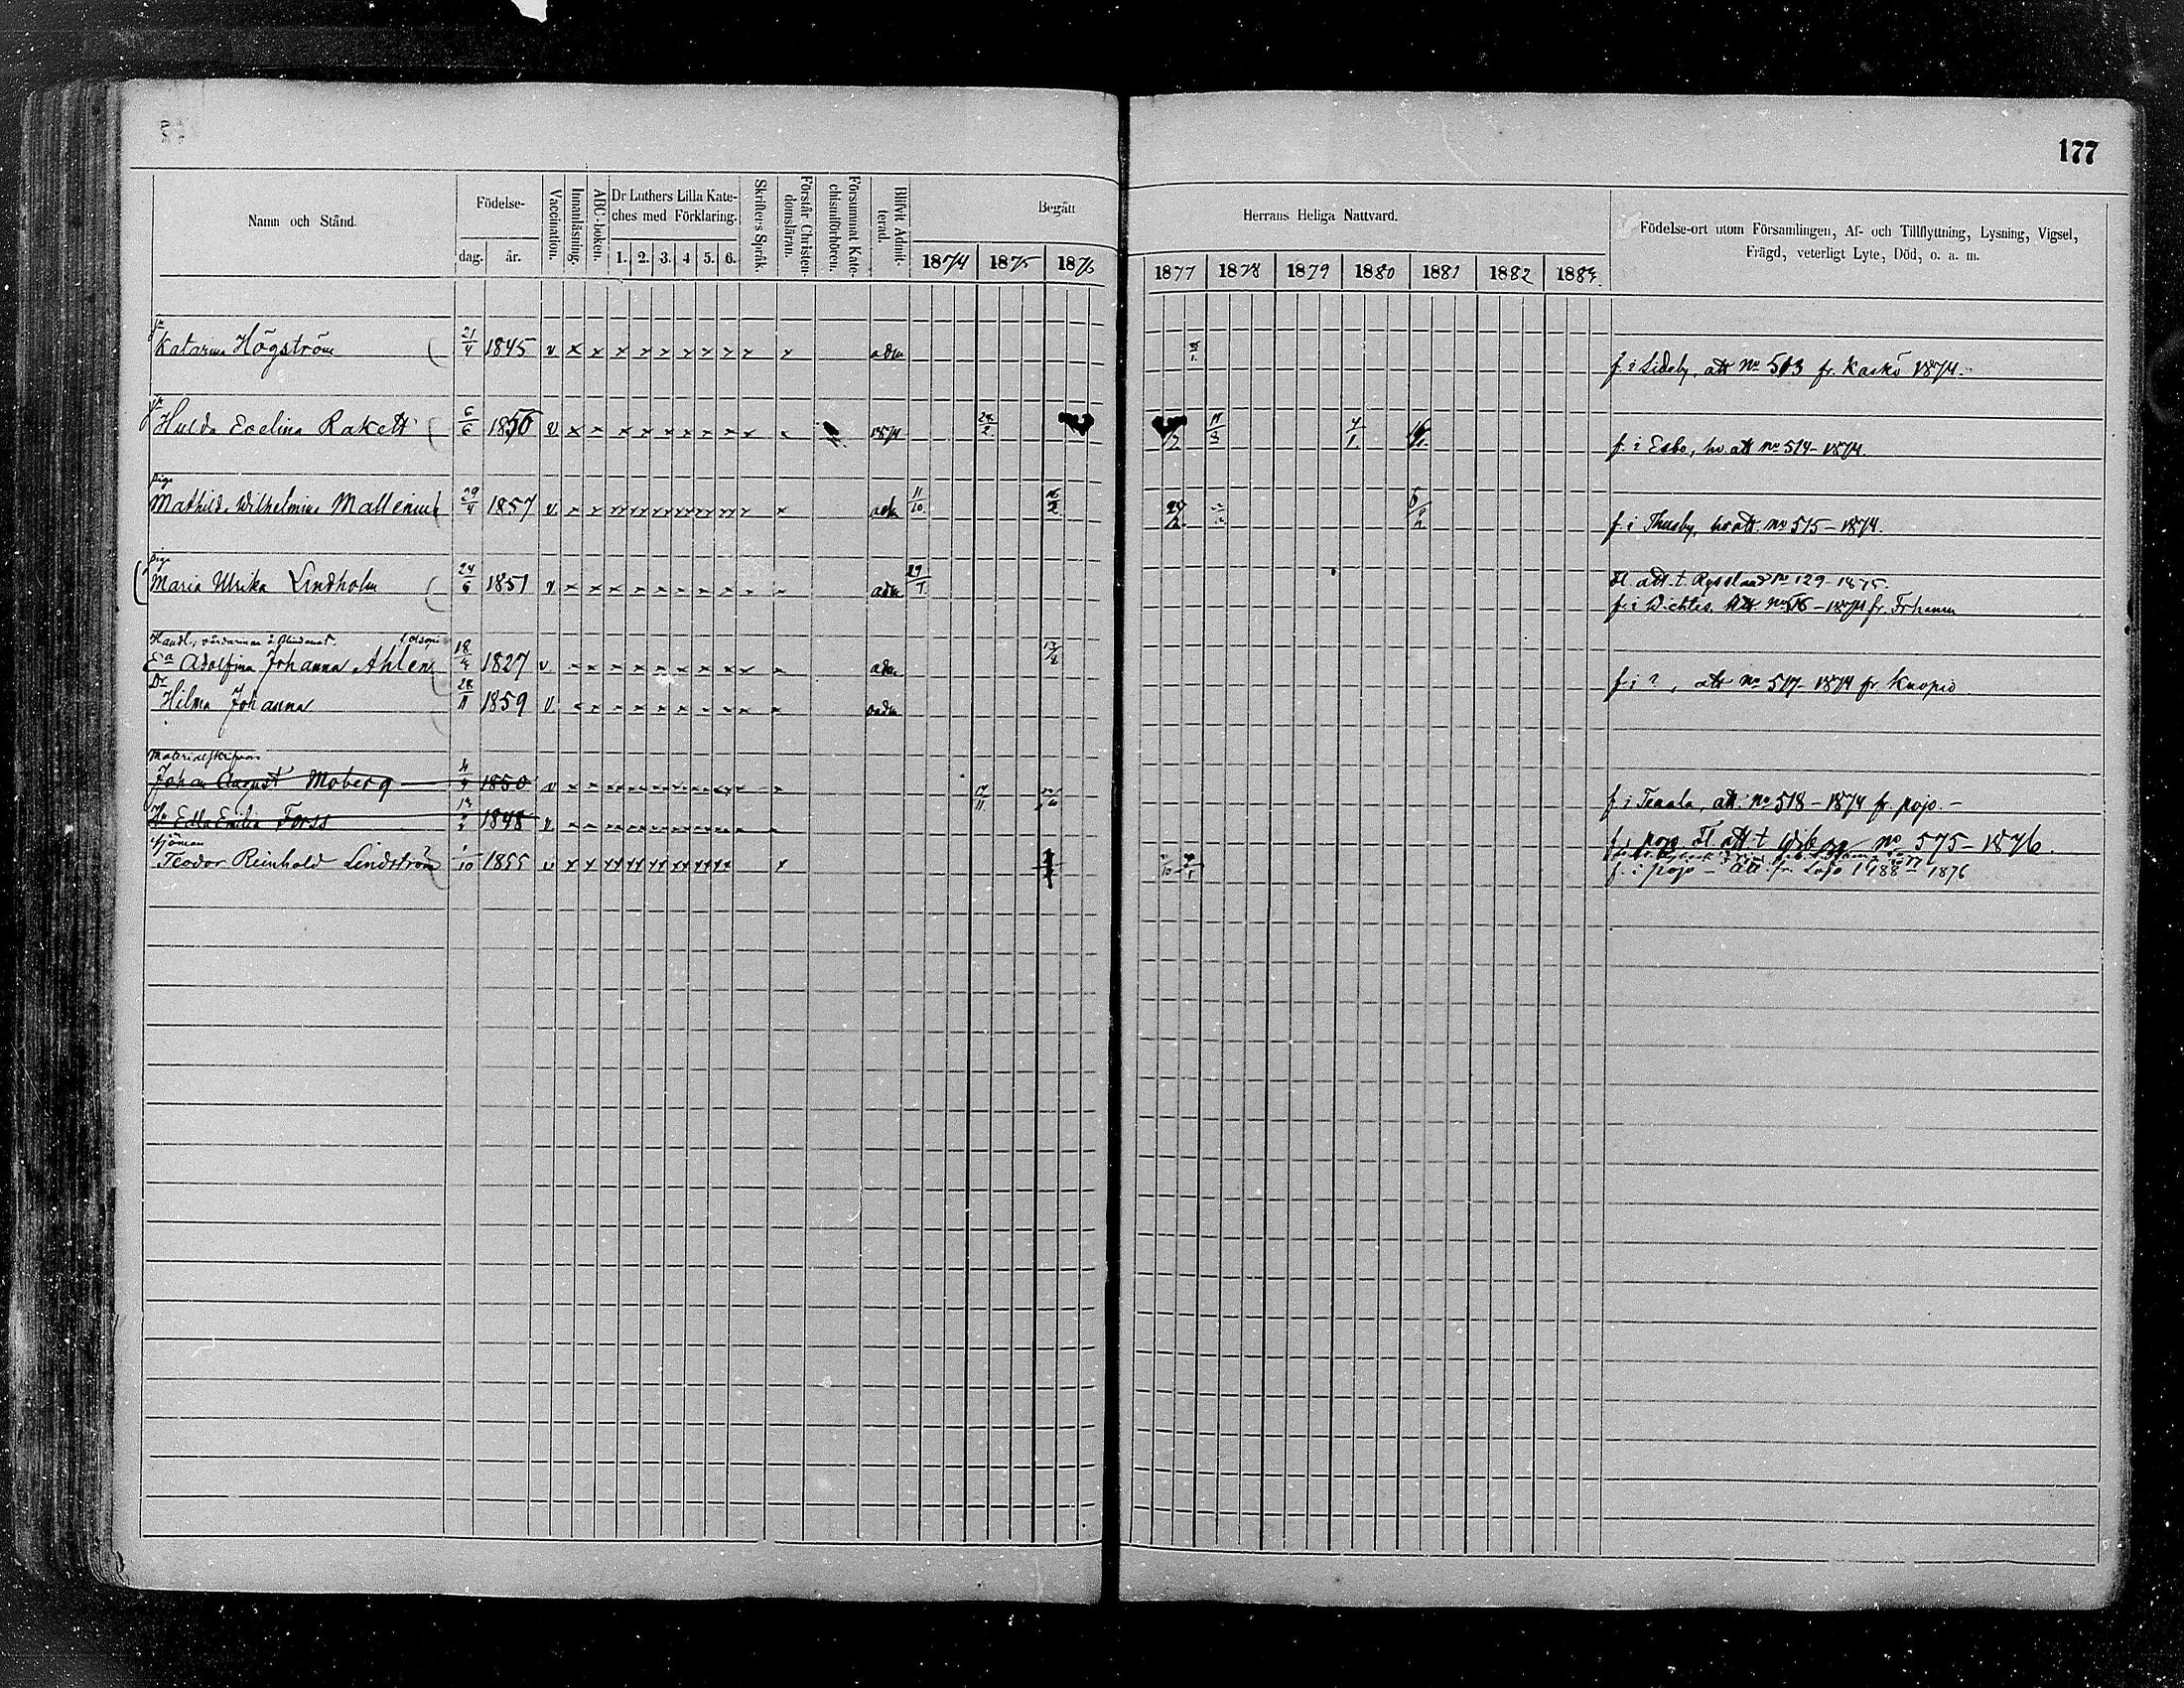 177
Namn och Stånd.
Födelse-
dag. år.
Vaccination.
Innanläsning.
ABC-boken.
Dr Luthers Lilla Kate-
ches med Förklaring.
1. 2. 3. 4 5. 6.
Skriftens Språk.
Förstår Christen-
domsläran.
Försummat Kate-
chismiförhören.
Blifvit Admit-
terad.
Begått
Herrans Heliga Nattvard.
1874 1875 1876
1877 1878 1879 1880 1881 1882 1883.
Födelse-ort utom Församlingen, Af- och Tillflyttning, Lysning, Vigsel,
Frägd, veterligt Lyte, Död, o. a. m.
Katarina Högström 21/4 1845 v x x x x x x x x x x adm f. i Sideby, att No 513 fr. Kaskö 1874.
Hulda Evelina Rakett 6/6 1856 v x x x x x x x x x x 1874 28/2 4/1 f. i Esbo, hr. att No 514 - 1874.
Piga
Mathilda Wilhelmina Mallenius 29/4 1857 v adm 11/10 f. i Thusby, hr att. No 515 - 1874.
Piga
Fl. att. t. Ryssland No 129 - 1875.
Maria Ulrika Lindholm 24/6 1851 v x x x x x x x x x x adm 29/7 f. i Wichtis. Att No 516 - 1874 fr. Frhamn
Handl.
Ea Adolfina Johanna Ahlen 18/4 1827 v adm f. i ?, att No 517 - 1874 fr. Kuopio
Dr
Hilma Johanna 28/11 1859 v
Materialskrifvare
Johan August Moberg 1850 v f. i Tenala, att. No 518 - 1874 fr. Pojo. -
Edla Emilia Forss 1848 v f. i Pojo Fl att t Wiborg No 575 - 1876.
Sjöman
Teodor Reinhold Lindström 1/10 1855 v x x xx xx xx xx xx xx x f. i Pojo - Att. fr. Lojo 1876